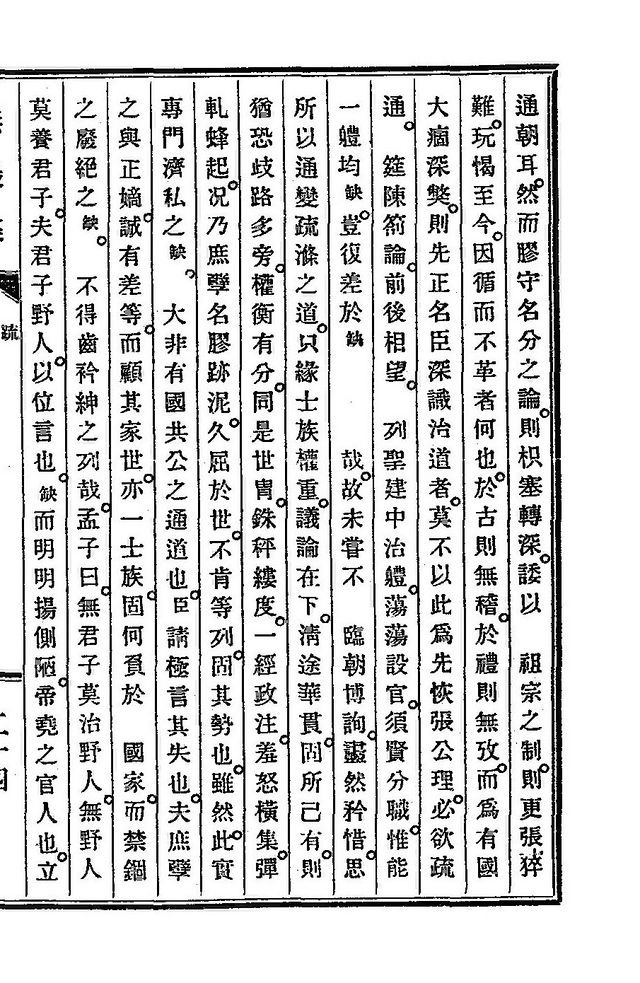 通朝耳。然而膠守名分之論。則枳塞轉深。諉以　祖宗之制。則更張猝
難。玩愒至今。因循而不革者何也。於古則無稽。於禮則無攷。而爲有國
大痼深獘。則先正名臣深識治道者。莫不以此爲先恢張公理。必欲疏
通。　筵陳箚論。前後相望。　列聖建中治軆。蕩蕩設官。須賢分職。惟能
一軆均缺。豈復差於缺　　　哉。故未嘗不　臨朝博詢。盡然矜惜。思
所以通變疏滌之道。只緣士族權重。議論在下。淸途華貫。固所己有。則
猶恐歧路多旁。權衡有分。同是世冑。銖秤縷度。一經政注。羞怒橫集。彈
軋蜂起。况乃庶孼名膠跡泥。久屈於世。不肯等列。固其勢也。雖然。此實
專門濟私之缺。　大非有國共公之通道也。臣請極言其失也。夫庶孼
之與正嫡。誠有差等。而顧其家世。亦一士族。固何負於　國家。而禁錮
之廢絕之缺。　不得齒衿紳之列哉。孟子曰。無君子莫治野人。無野人
莫養君子。夫君子野人。以位言也。缺而明明揚側陋。帝堯之官人也。立
疏
二十四